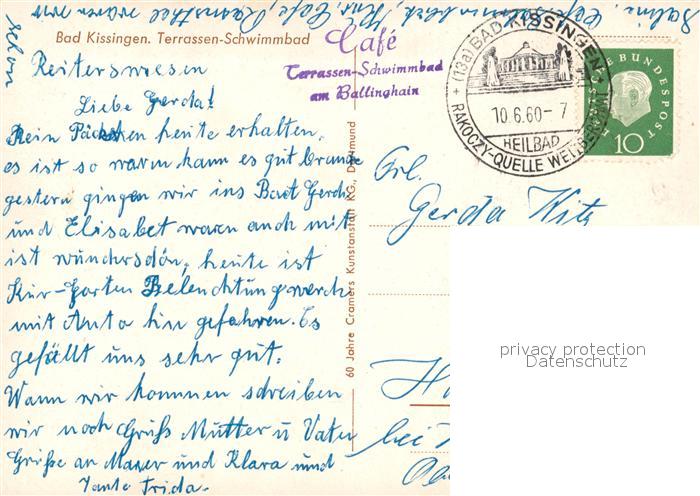 Bad Kissingen. Terrassen-Schwimmbad
Café
Terrassen-Schwimmbad
am Ballinghain
(13a) BAD KISSINGEN
10.6.60-7
HEILBAD
RAKOCZY-QUELLE
DEUTSCHE BUNDESPOST
10
schon
Reiterswiesen
Liebe Gerda!
Dein Päckchen heute erhalten,
es ist so warm kann es gut
gestern gingen wir ins Bad Gerda
und Elisabet waren auch mit
ist wunderschön, heute ist
Kur-Garten Beleuchtung
mit Auto hin gefahren. Es
gefällt uns sehr gut.
Wann wir kommen schreiben
wir noch Gruß Mutter u Vater
Grüße an und Klara und
Tante Frida.
60 Jahre Cramers Kunstanstalt KG., Dortmund
Frl.
Gerda
bei
privacy protection
Datenschutz